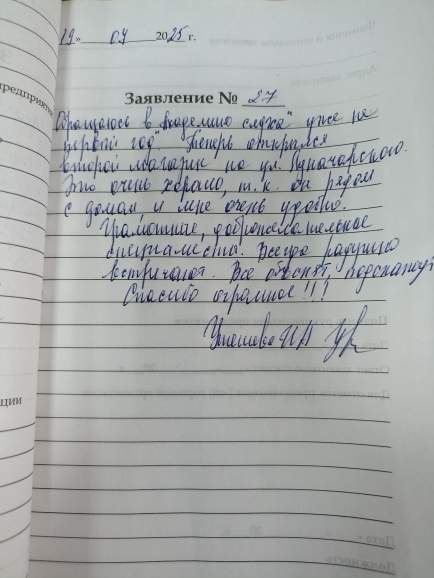 19 » 07 2025 г.
Заявление № 27
Обращаюсь в "Академию слуха" уже не
первый год. Теперь открылся
второй магазин на ул. Луначарского.
Это очень хорошо, т.к. он рядом
с домом и мне очень удобно.
Грамотные, доброжелательные
специалисты. Всегда радушно
встречают. Все объяснят, подскажут
Спасибо огромное!!!